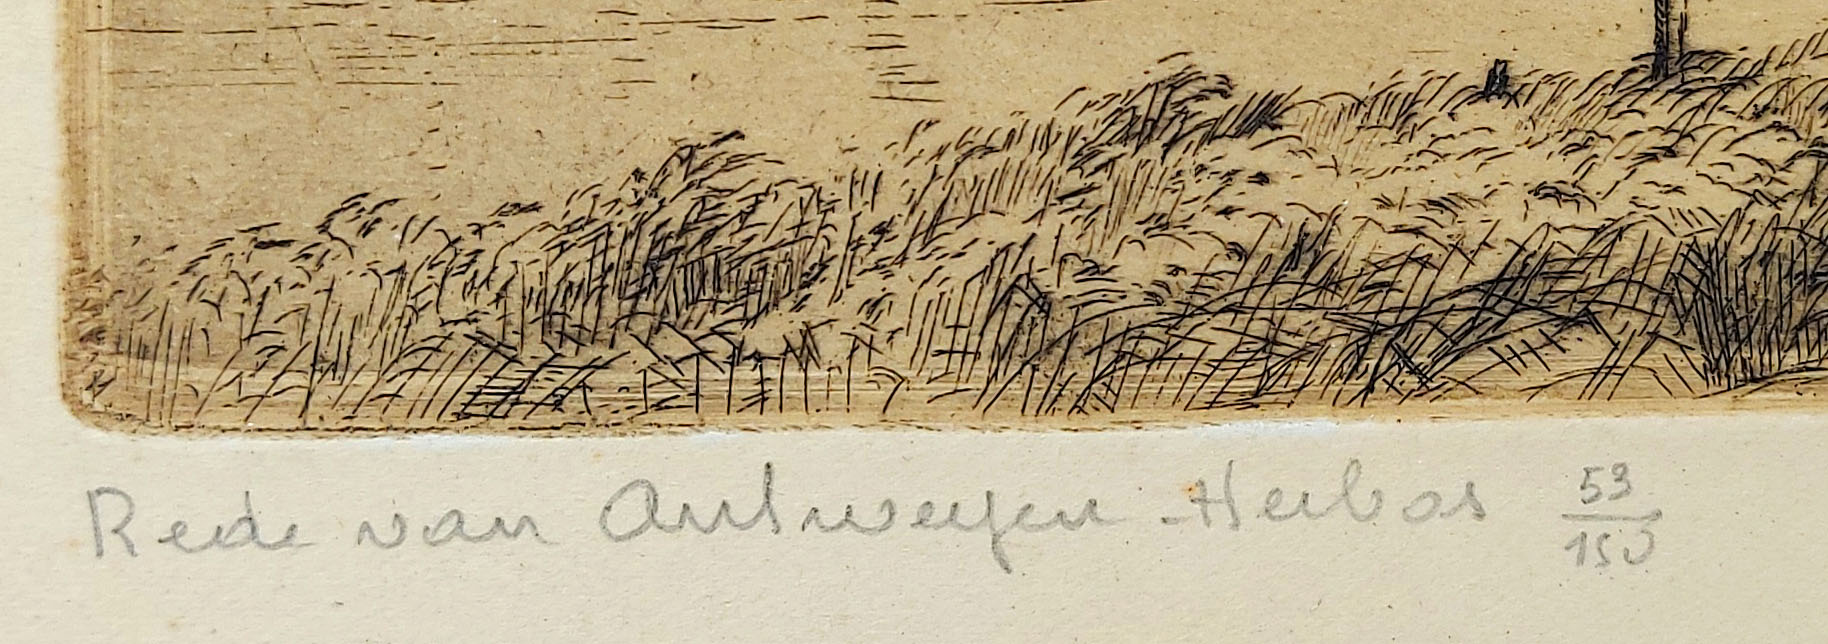 Rede van Antwerpen - Heibos 53/150